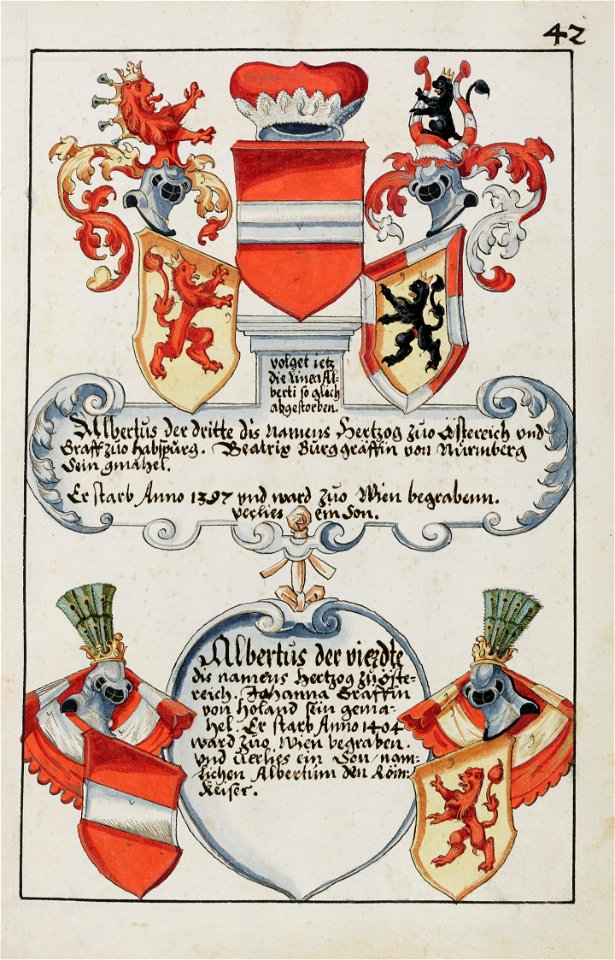 42
volget ietz
die Linea Al-
berti so glich
abgestorben.
Albertus der dritte dis namens Hertzog zuo Östereich vnd
Graff zuo Habspurg. Beatrix Burggräffin von Nürmberg
sein gmahel.
Er starb Anno 1397 vnd ward zuo Wien begrabenn.
verlies ein Son.
Albertus der vierdte
dis namens Hertzog zu Öste-
reich. Johanna Gräffin
von Holand sein gema-
hel. Er starb Anno 1404
ward zuo Wien begraben.
vnd verlies ein Son, nam-
lichen Albertum den Röm.
Keiser.